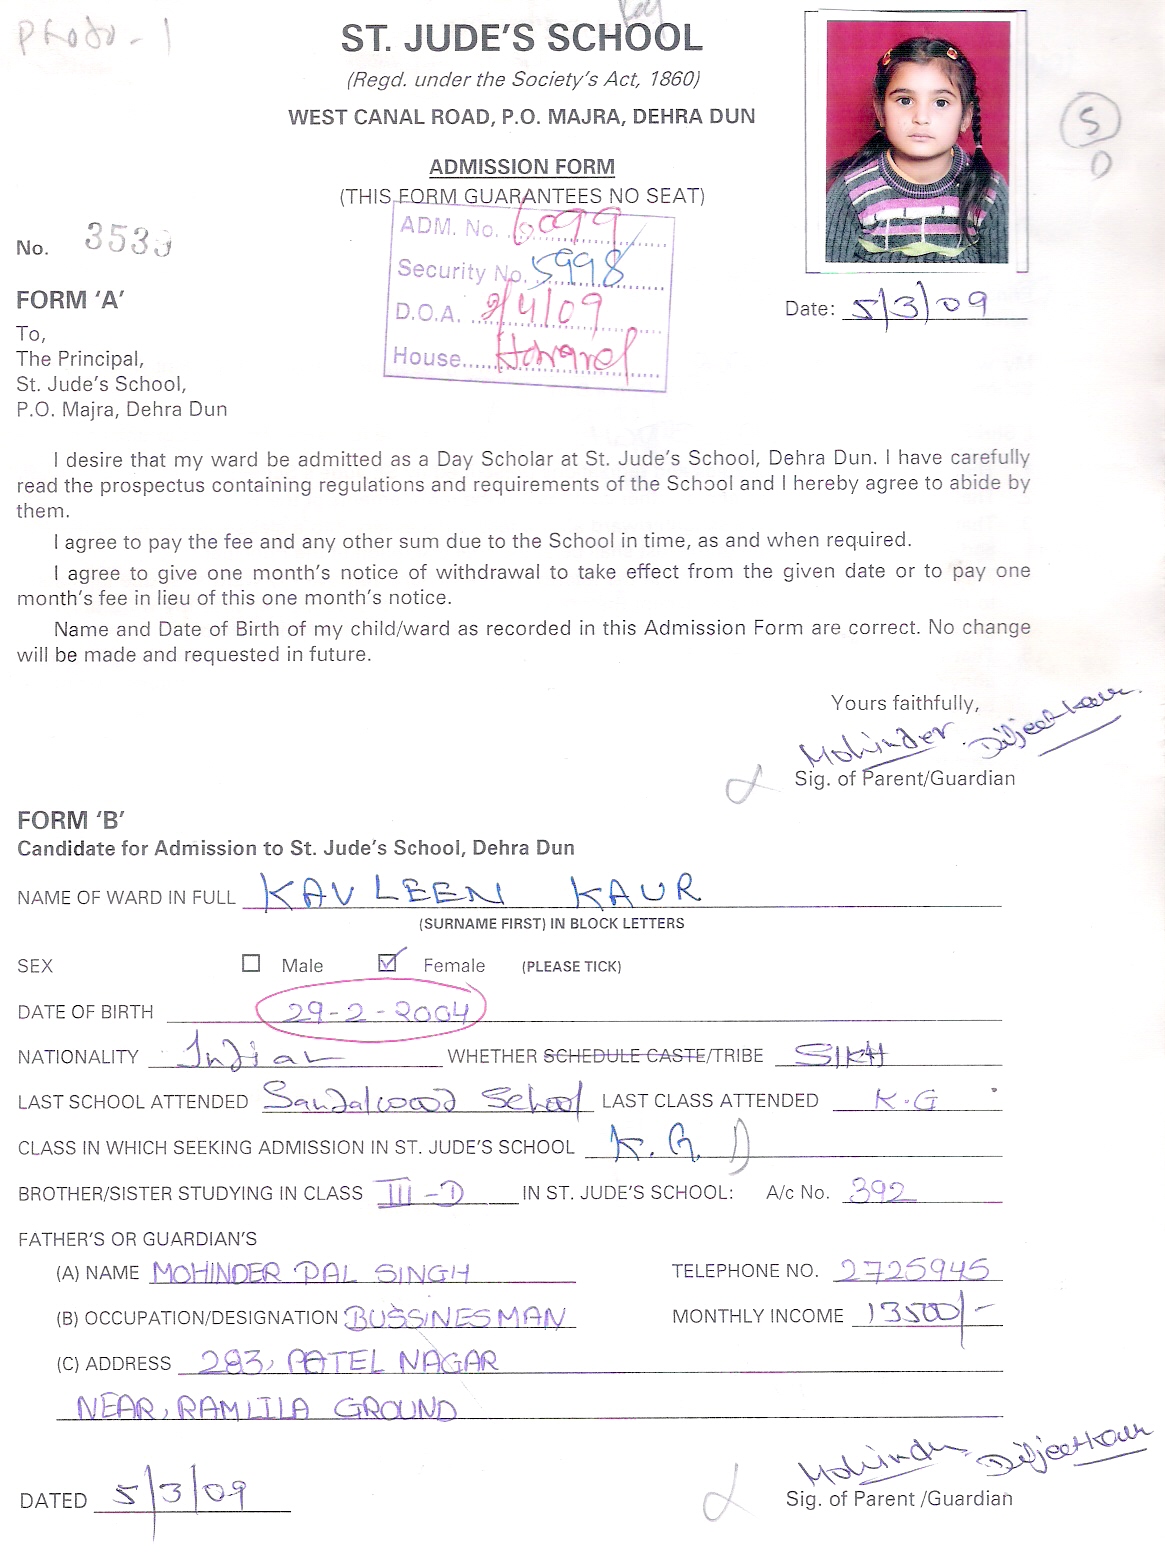 Photo - 1
ST. JUDE'S SCHOOL
(Regd. under the Society's Act, 1860)
WEST CANAL ROAD, P.O. MAJRA, DEHRA DUN
5
D
ADMISSION FORM
(THIS FORM GUARANTEES NO SEAT)
No. 3533
ADM. No. 6099
Security No. 5998
D.O.A. 2/4/09
House......
FORM 'A'
Date: 5/3/09
To,
The Principal,
St. Jude's School,
P.O. Majra, Dehra Dun
I desire that my ward be admitted as a Day Scholar at St. Jude's School, Dehra Dun. I have carefully
read the prospectus containing regulations and requirements of the School and I hereby agree to abide by
them.
I agree to pay the fee and any other sum due to the School in time, as and when required.
I agree to give one month's notice of withdrawal to take effect from the given date or to pay one
month's fee in lieu of this one month's notice.
Name and Date of Birth of my child/ward as recorded in this Admission Form are correct. No change
will be made and requested in future.
Yours faithfully,
Mohinder Diljeet Kaur
Sig. of Parent/Guardian
FORM 'B'
Candidate for Admission to St. Jude's School, Dehra Dun
NAME OF WARD IN FULL KAVLEEN KAUR
(SURNAME FIRST) IN BLOCK LETTERS
SEX Male Female (PLEASE TICK)
DATE OF BIRTH 29-2-2004
NATIONALITY Indian WHETHER SCHEDULE CASTE/TRIBE SIKH
LAST SCHOOL ATTENDED Sandalwood School LAST CLASS ATTENDED K.G
CLASS IN WHICH SEEKING ADMISSION IN ST. JUDE'S SCHOOL K.G. D
BROTHER/SISTER STUDYING IN CLASS III-D IN ST. JUDE'S SCHOOL: A/c No. 392
FATHER'S OR GUARDIAN'S
(A) NAME MOHINDER PAL SINGH TELEPHONE NO. 2725945
(B) OCCUPATION/DESIGNATION BUSSINESMAN MONTHLY INCOME 13500/-
(C) ADDRESS 283, PATEL NAGAR
NEAR, RAMLILA GROUND
Mohinder Diljeet Kaur
DATED 5/3/09 Sig. of Parent /Guardian